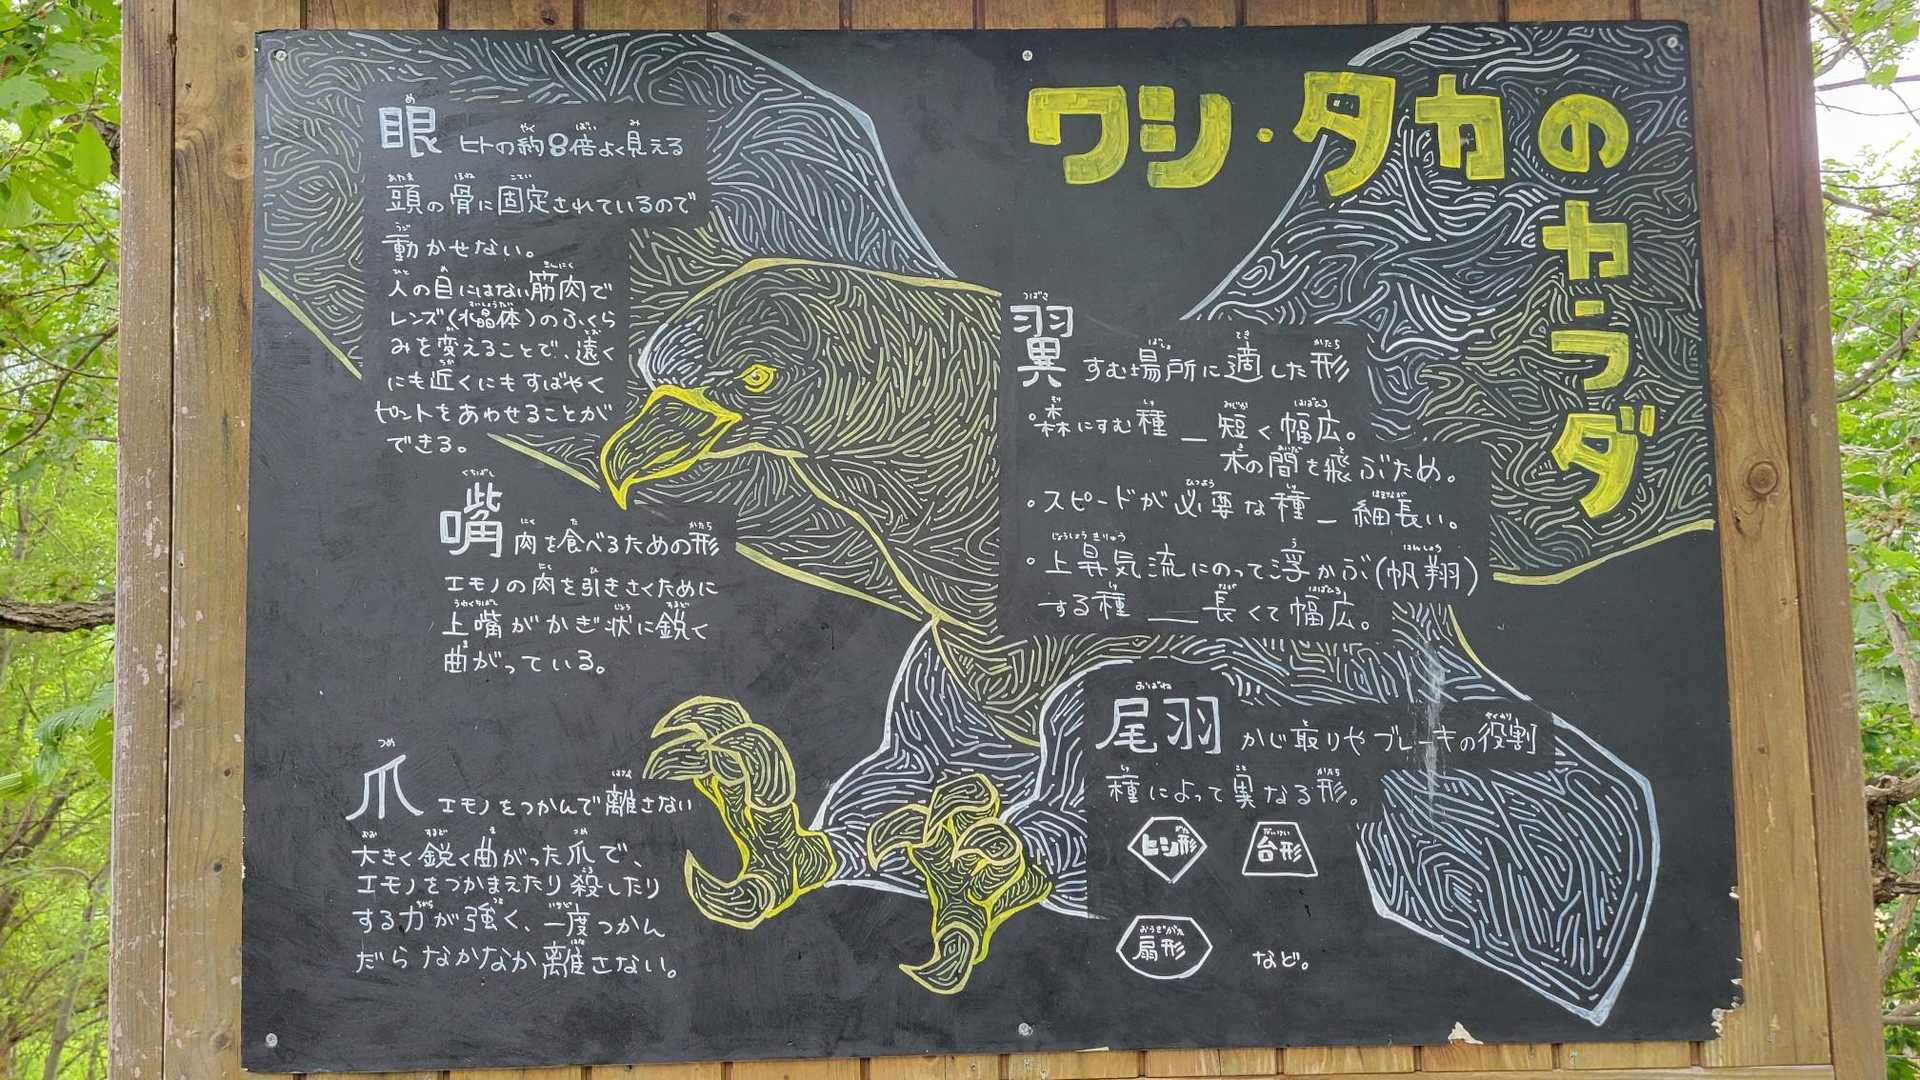 ワシ・タカのカラダ
眼 ヒトの約8倍よく見える
頭の骨に固定されているので
動かせない。
人の目にはない筋肉で
レンズ(水晶体)のふくら
みを変えることで、遠く
にも近くにもすばやく
ピントをあわせることが
できる。
嘴 肉を食べるための形
エモノの肉を引きさくために
上嘴がかぎ状に鋭く
曲がっている。
爪 エモノをつかんで離さない
大きく鋭く曲がった爪で、
エモノをつかまえたり殺したり
する力が強く、一度つかん
だらなかなか離さない。
翼 すむ場所に適した形
・森にすむ種 — 短く幅広。
木の間を飛ぶため。
・スピードが必要な種 — 細長い。
・上昇気流にのって浮かぶ(帆翔)
する種 — 長くて幅広。
尾羽 かじ取りやブレーキの役割
種によって異なる形。
ヒシ形 台形
扇形 など。